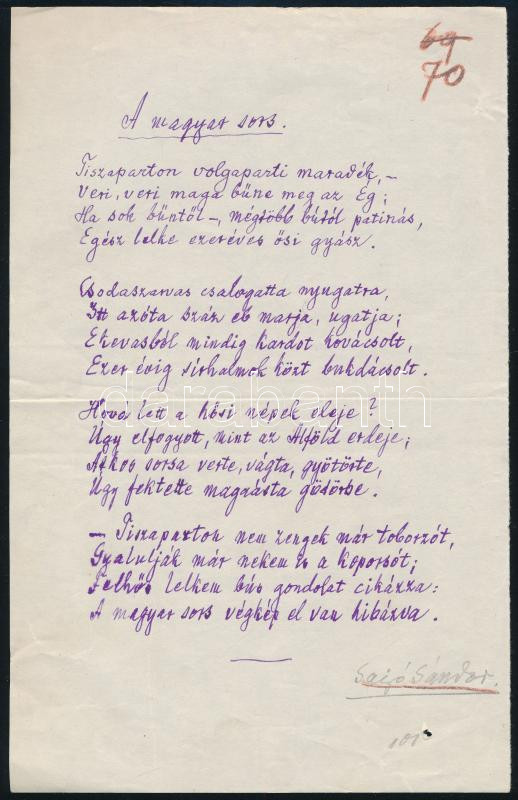 69
70
A magyar sors.
Tiszaparton volgaparti maradék, –
Veri, veri maga bűne meg az Ég;
Ha sok bűntől –, megtöbb bútól patinás,
Egész lelke ezeréves ősi gyász.
Csodaszarvas csalogatta nyugatra,
Itt azóta száz eb marja, ugatja;
Ekevasból mindig kardot kovácsolt,
Ezer évig sírhalmok közt bukdácsolt.
Hová lett a hősi népek eleje?
Úgy elfogyott, mint az Alföld erdeje;
Átkos sorsa verte, vágta, gyötörte,
Úgy fektette magaásta gödörbe.
– Tiszaparton nem zengek már toborzót,
Gyalulják már nekem is a koporsót;
Felhős lelkem bús gondolat cikázza:
A magyar sors végkép el van hibázva.
Sajó Sándor.
darabanth